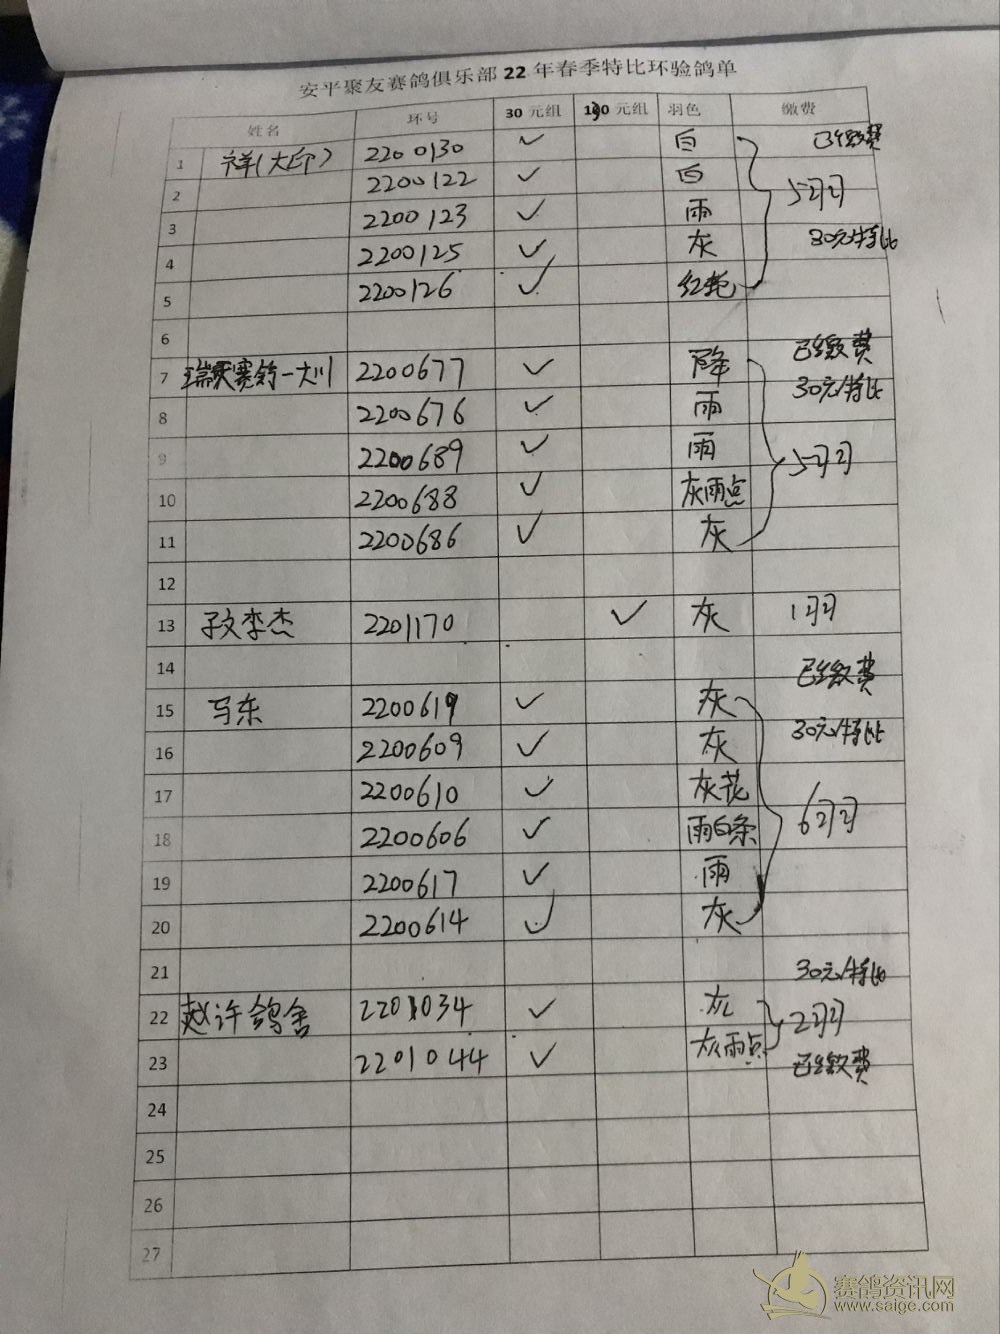 安平聚友赛鸽俱乐部22年春季特比环验鸽单
姓名 环号 30元组 100元组 羽色 缴费
1 祥(大印) 2200130 ✓ 白 已缴费
2 2200122 ✓ 白 5羽
3 2200123 ✓ 雨
4 2200125 ✓ 灰 30元特比
5 2200126 ✓ 红轮
6
7 瑞联赛鸽一大川 2200677 ✓ 降 已缴费
8 2200676 ✓ 雨 30元特比
9 2200689 ✓ 雨 5羽
10 2200688 ✓ 灰雨点
11 2200686 ✓ 灰
12
13 李杰 2201170 ✓ 灰 1羽
14 已缴费
15 马东 2200619 ✓ 灰
16 2200609 ✓ 灰 30元特比
17 2200610 ✓ 灰花
18 2200606 ✓ 雨白条 6羽
19 2200617 ✓ 雨
20 2200614 ✓ 灰
21 30元特比
22 赵许鸽舍 2201034 ✓ 灰 2羽
23 2201044 ✓ 灰雨点 已缴费
24
25
26
27
赛鸽资讯网
www.saige.com